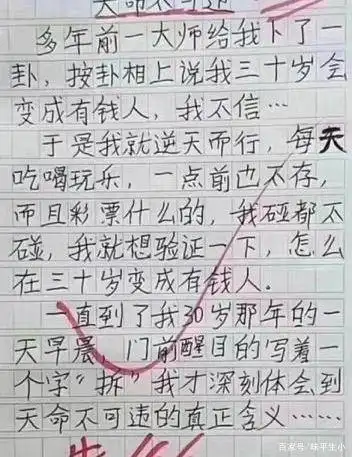 天命不可违
多年前一大师给我卜了一
卦，按卦相上说我三十岁会
变成有钱人，我不信…
于是我就逆天而行，每天
吃喝玩乐，一点前也不存，
而且彩票什么的，我碰都不
碰，我就想验证一下，怎么
在三十岁变成有钱人.
一直到了我30岁那年的一
天早晨，门前醒目的写着一
个字“拆”我才深刻体会到
天命不可违的真正含义……
百家号/味平生小